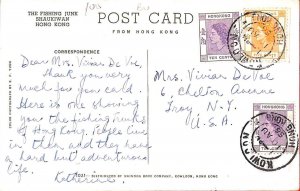 THE FISHING JUNK
SHAUKIWAN
HONG KONG
POST CARD
FROM HONG KONG
CORRESPONDENCE
Dear Mrs. Vivian De Voe,
Thank you very
much for your card.
Here is one showing
you the fishing junks
of Hong Kong. People live
in them and they have
a hard but adventurous
life.
Katherine
Mrs. Vivian DeVoe
6, Chelton Avenue
Troy N.Y.
U.S.A.
HONG KONG
TEN CENTS
HONG KONG
KOWLOON
DISTRIBUTED BY SWINDON BOOK COMPANY, KOWLOON, HONG KONG